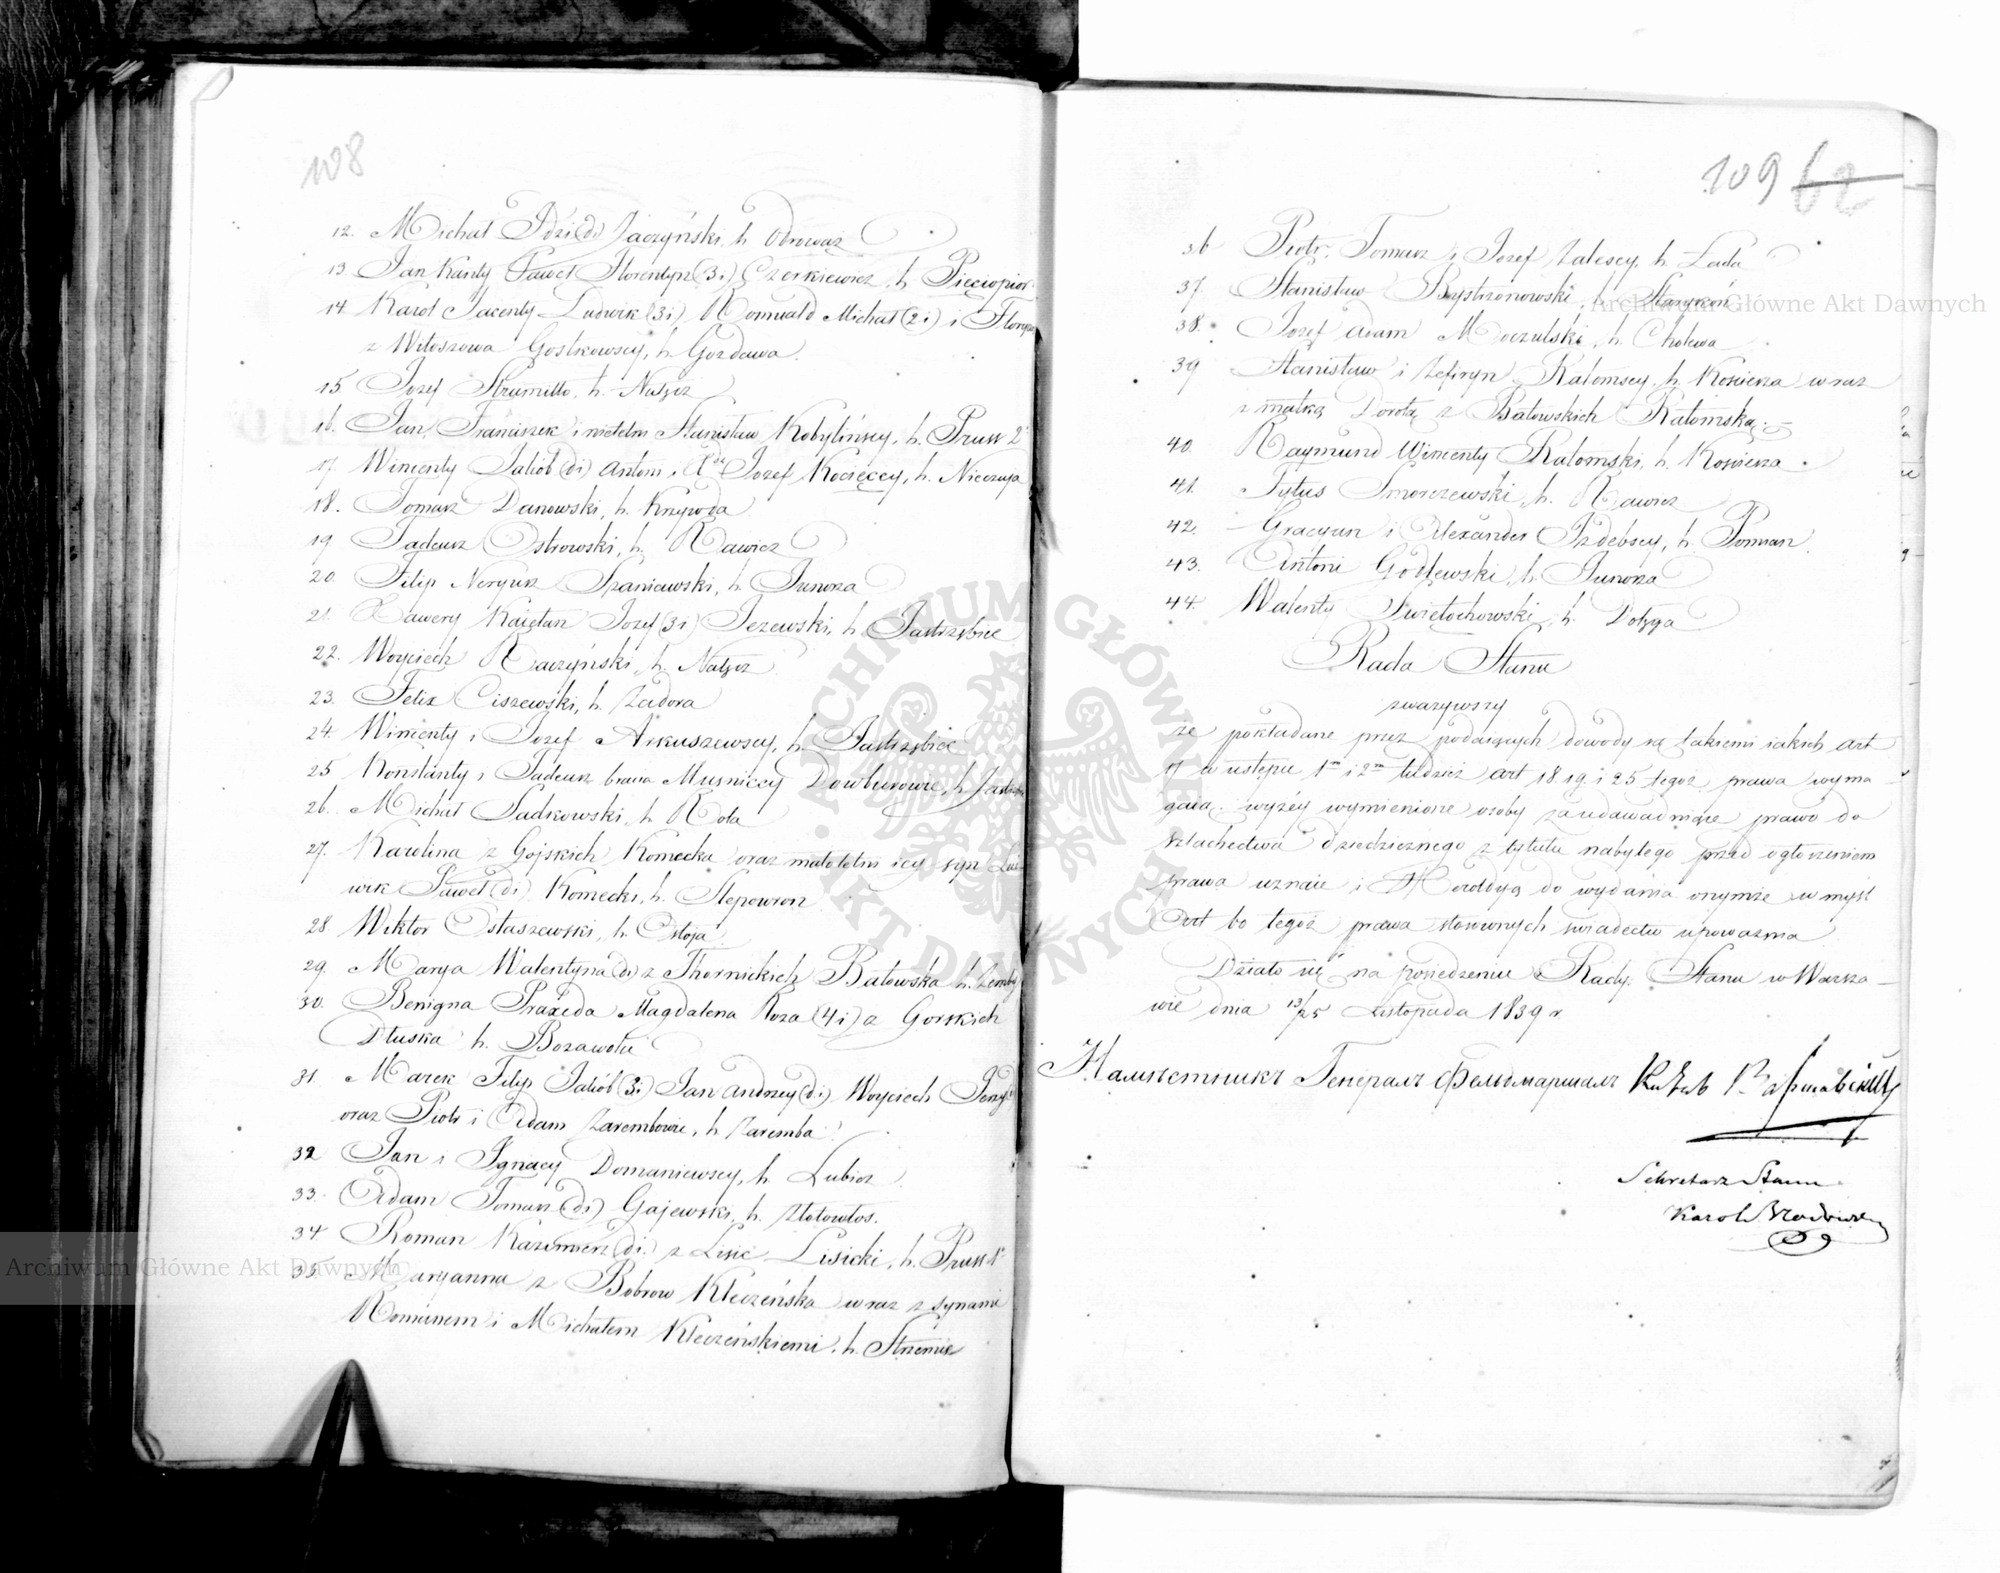 108
12. Michał Idzi (2i) Jaczyński, h. Odrowąż
13. Jan Kanty Paweł Florentyn (3i) Czerkiewicz, h. Pięciopiór
14. Karol Jacenty Ludwik (3i) Romuald Michał (2i) i Floryan
z Witoszowa Gostkowscy, h. Gozdawa.
15. Jozef Strumiłło, h. Nałęcz
16. Jan, Franciszek i nieletni Stanisław Kobylińscy, h. Pruss 2°
17. Wincenty Jakób (2i) Antoni, Jozef Kocięccy, h. Nieczuja
18. Tomasz Danowski, h. Krzywda
19. Tadeusz Ostrowski, h. Rawicz
20. Filip Neryusz Szaniawski, h. Junosza
21. Xawery Kajetan Jozef (3i) Jeżewski, h. Jastrzębiec
22. Woyciech Raczyński, h. Nałęcz
23. Felix Ciszewski, h. Zadora
24. Wincenty i Jozef Arkuszewscy, h. Jastrzębiec
25. Konstanty i Tadeusz bracia Muśniccy Dowborowie, h.
26. Michał Sadkowski, h. Rola
27. Karolina z Gojskich Komecka oraz małoletni jey syn Lud
wik Paweł (2i) Komecki, h. Slepowron
28. Wiktor Ostaszewski, h. Ostoja
29. Marya Walentyna (2i) z Thornickich Batowska h.
30. Benigna Praxeda Magdalena Roza (4i) z Gorskich
Dłuska h. Bozawola
31. Marek Filip Jakób (3i) Jan Andrzey (2i) Woyciech Jerzy
oraz Piotr i Adam Zarembowie, h. Zaremba
32. Jan i Ignacy Domaniewscy, h. Lubicz
33. Adam Tomasz (2i) Gajewski, h. Złotowłos.
34. Roman Kazimierz (2i) z Lisic Lisicki, h. Pruss 1°
35. Maryanna z Bobrow Kleczeńska wraz z synami
Romanem i Michałem Kleczeńskiemi, h. Strzemie
109 62
36 Piotr, Tomasz i Jozef Zalescy, h. Łada
37 Stanisław Bystrzonowski, h. Starykoń
38. Jozef Adam Moczulski, h. Cholewa
39 Stanisław i Zefiryn Ratomscy, h. Kosciesza wraz
z matką Dorotą z Batowskich Ratomską.
40. Raymund Wincenty Ratomski, h. Kosciesza.
41. Tytus Smorczewski, h. Rawicz
42. Gracyan i Alexander Izdebscy, h. Pomian.
43. Antoni Godlewski, h. Junosza
44. Walenty Swiętochowski, h. Dołęga
Rada Stanu
zwarzywszy
że pokładane przez podaiących dowody są takiemi iakich art
17 w ustępie 1m i 2m tudzież art 18 19 i 25 tegoż prawa wyma
gaią. wyżéy wymienione osoby za udawadniaiące prawo do
szlachectwa dziedzicznego z tytułu nabytego przed ogłoszeniem
prawa uznaie i Heroldyą do wydania onymże w myśl
Art 60 tegoż prawa stosownych swiadectw upoważnia
Działo się na posiedzeniu Rady Stanu w Warsza
wie dnia 13/25 Listopada 1839 r
Намѣстникъ Генералъ Фельдмаршалъ
Sekretarz Stanu
Karol
Archiwum Główne Akt Dawnych
ARCHIWUM GŁÓWNE AKT DAWNYCH
Archiwum Główne Akt Dawnych